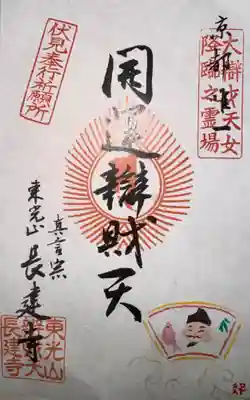 京都
大辯才天女
降臨之霊場
伏見奉行祈願所
開運辯財天
真言宗
東光山 長建寺
東光山
長建寺